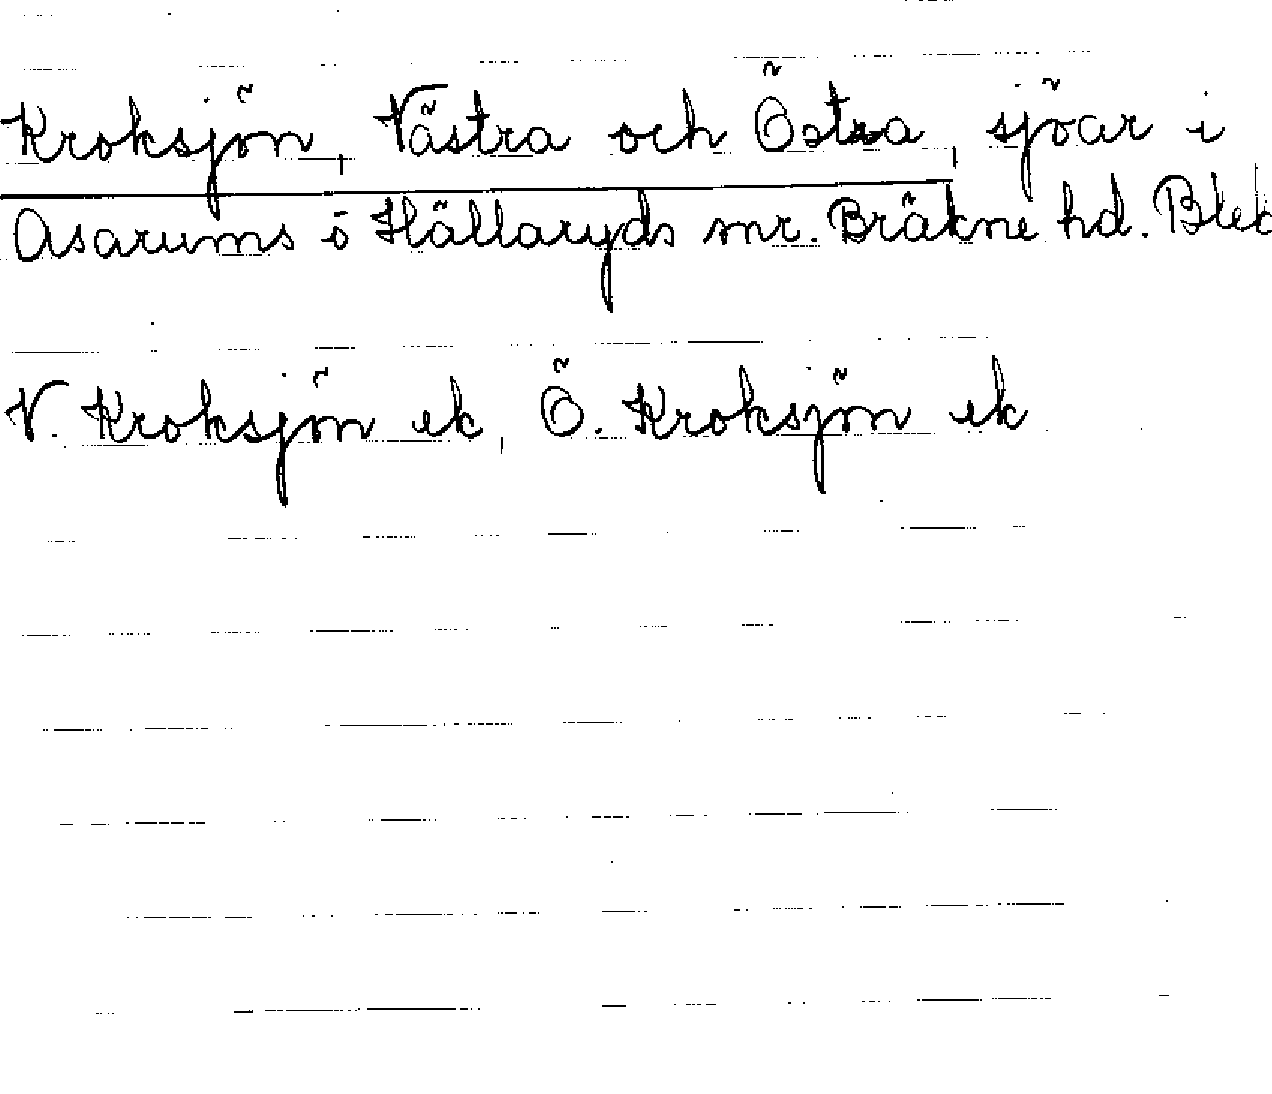 Kroksjön, Västra och Östra, sjöar i
Asarums o Hällaryds snr. Bräkne hd. Blek
V. Kroksjön ek, Ö. Kroksjön ek